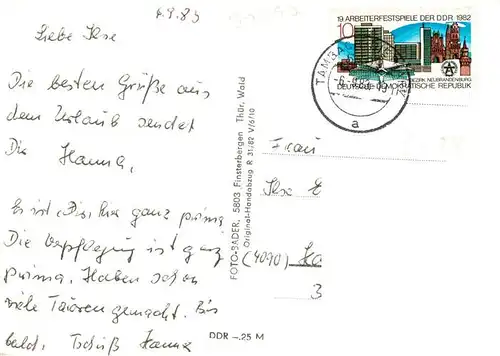 4.9.83
Liebe Ilse
Die besten Grüße aus
dem Urlaub sendet
Die Hanna,
Es ist hier ganz prima
Die Verpflegung ist ganz
prima. Haben schon
viele Touren gemacht. Bis
bald. Tschüß Hanna
FOTO-BADER, 5803 Finsterbergen Thür. Wald
Original-Handabzug R 31/82 V/6/10
DDR –.25 M
19 ARBEITERFESTSPIELE DER DDR 1982
10
BEZIRK NEUBRANDENBURG
DEUTSCHE DEMOKRATISCHE REPUBLIK
TAMBA
a
Frau
Ilse E
(4090) Ha
3